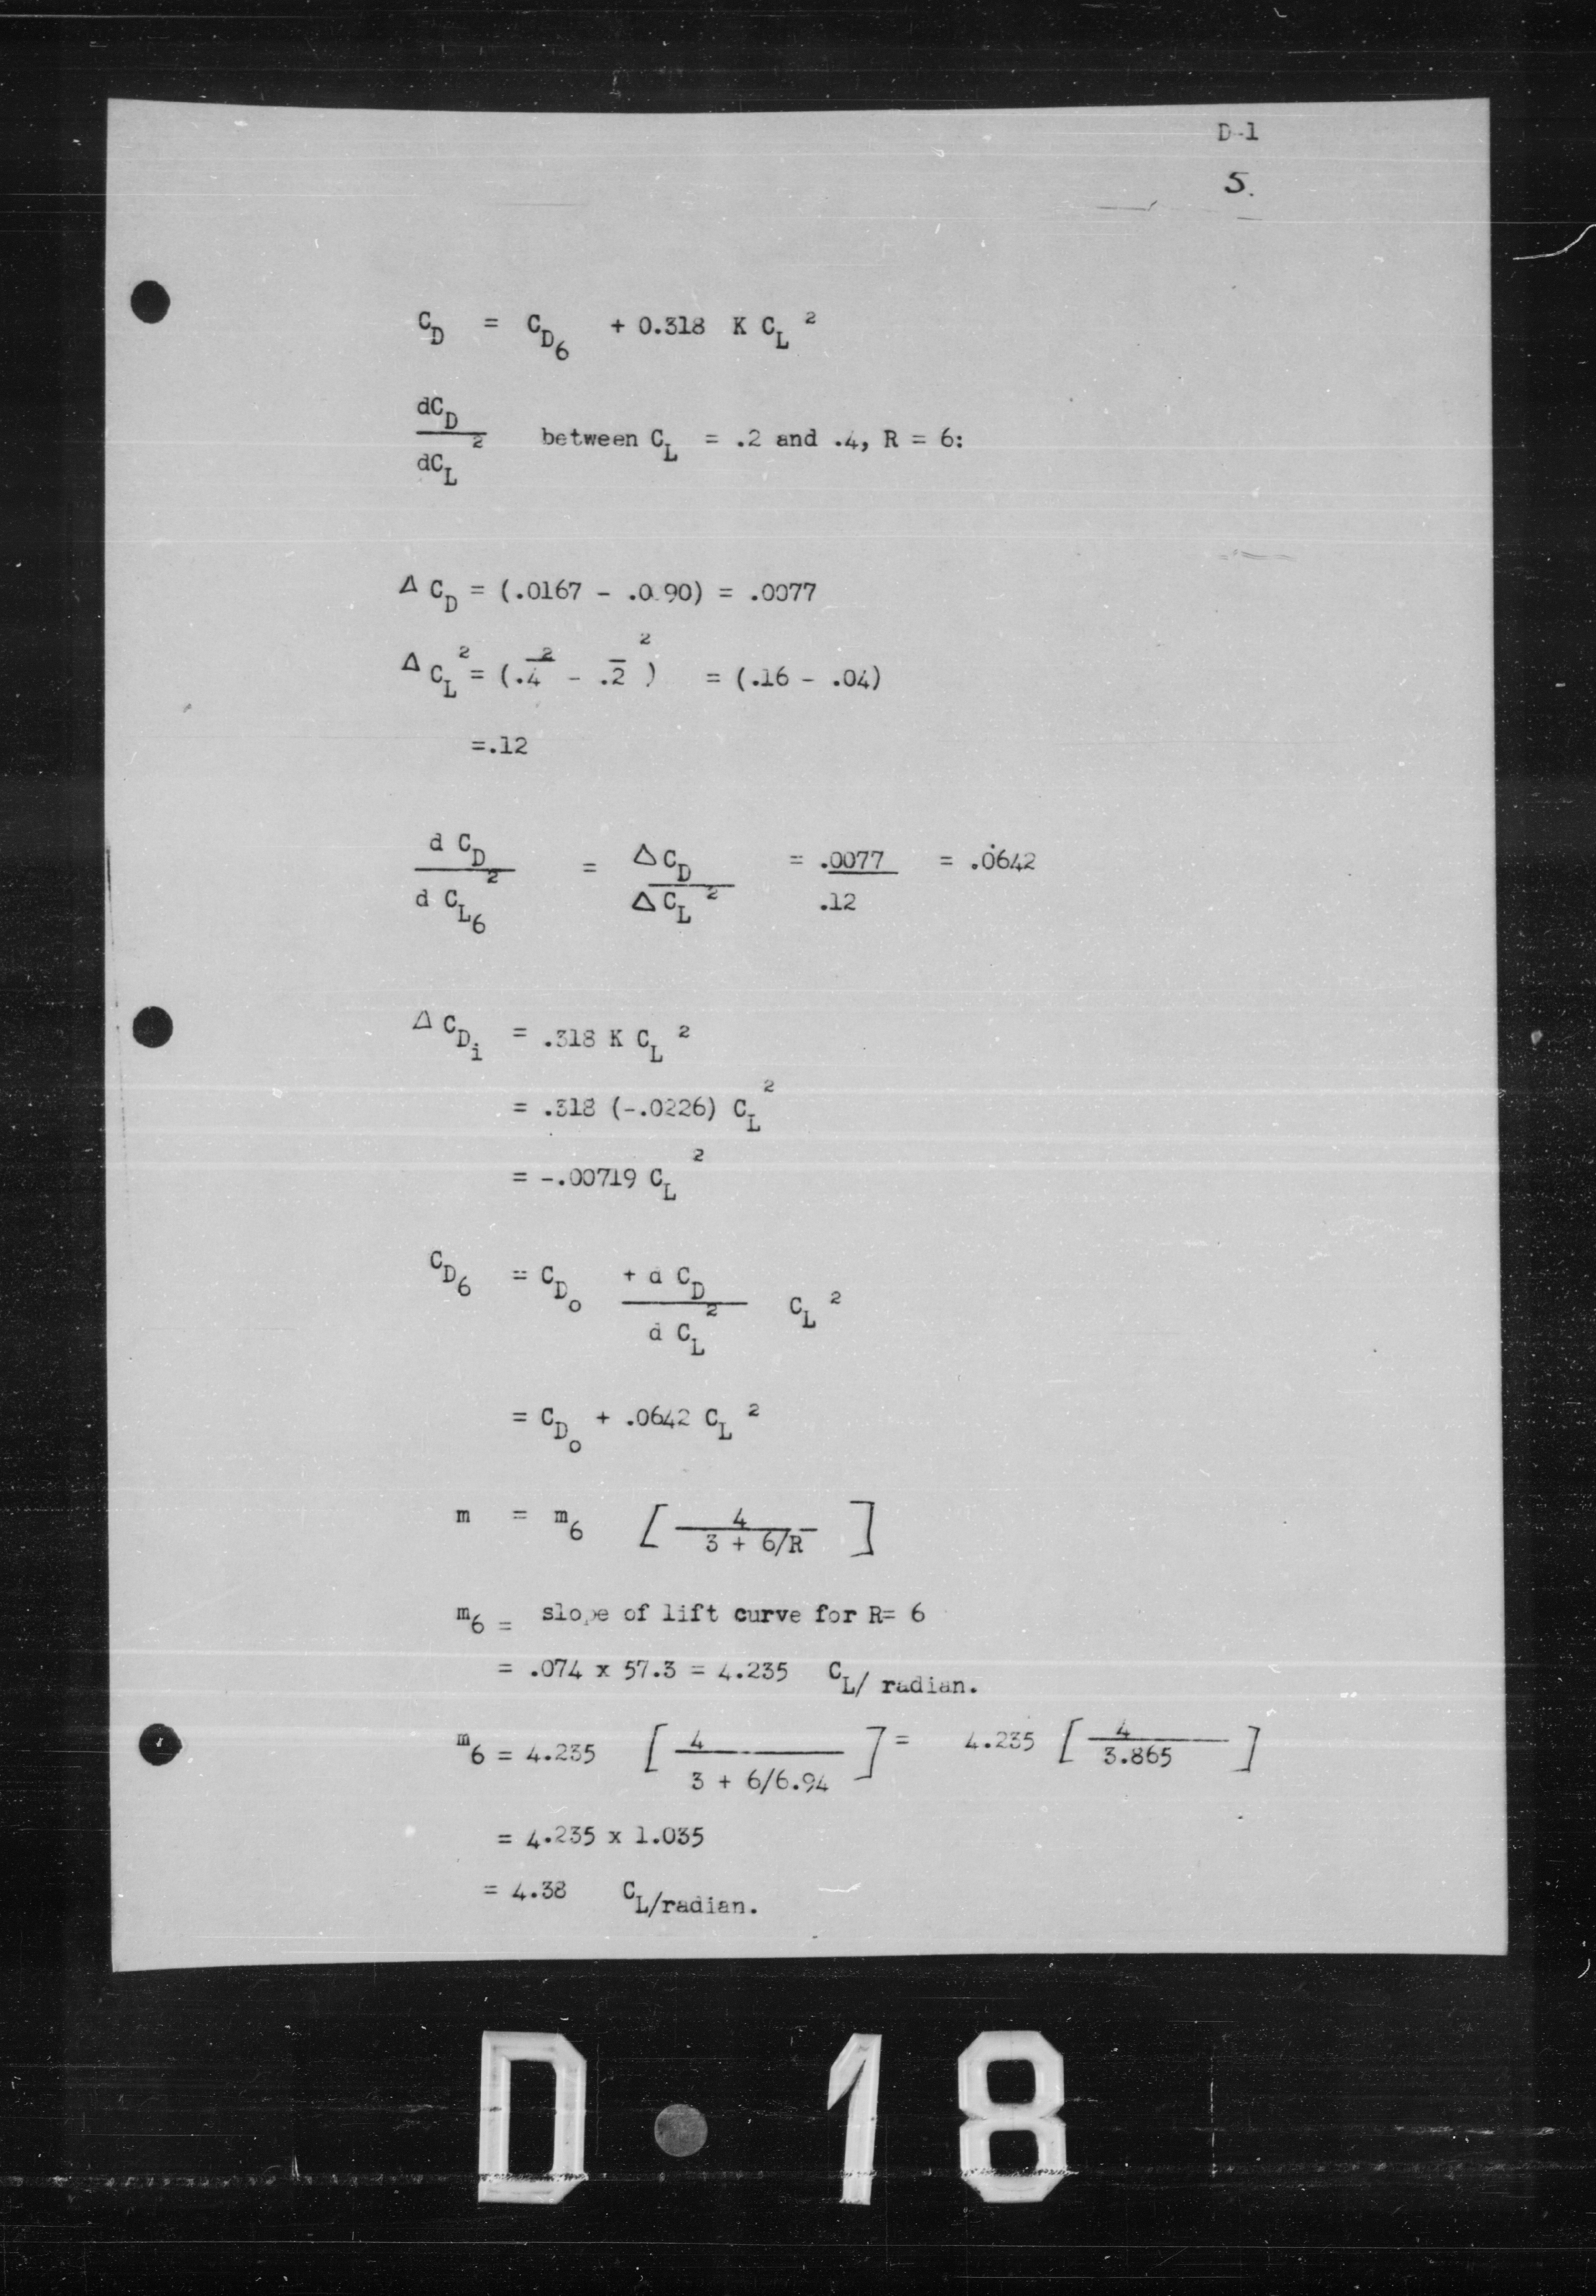 D-1
5.
C_D = C_D6 + 0.318 K C_L ²
dC_D / dC_L ² between C_L = .2 and .4, R = 6:
Δ C_D = (.0167 - .0090) = .0077
Δ C_L ² = (.4 ² - .2 ²) = (.16 - .04)
=.12
d C_D / d C_L6 ² = Δ C_D / Δ C_L ² = .0077 / .12 = .0642
Δ C_Di = .318 K C_L ²
= .318 (-.0226) C_L ²
= -.00719 C_L ²
C_D6 = C_Do + d C_D / d C_L ² C_L ²
= C_Do + .0642 C_L ²
m = m6 [ 4 / 3 + 6/R ]
m6 = slope of lift curve for R= 6
= .074 x 57.3 = 4.235 C_L/ radian.
m6 = 4.235 [ 4 / 3 + 6/6.94 ] = 4.235 [ 4 / 3.865 ]
= 4.235 x 1.035
= 4.38 C_L/radian.
D 18